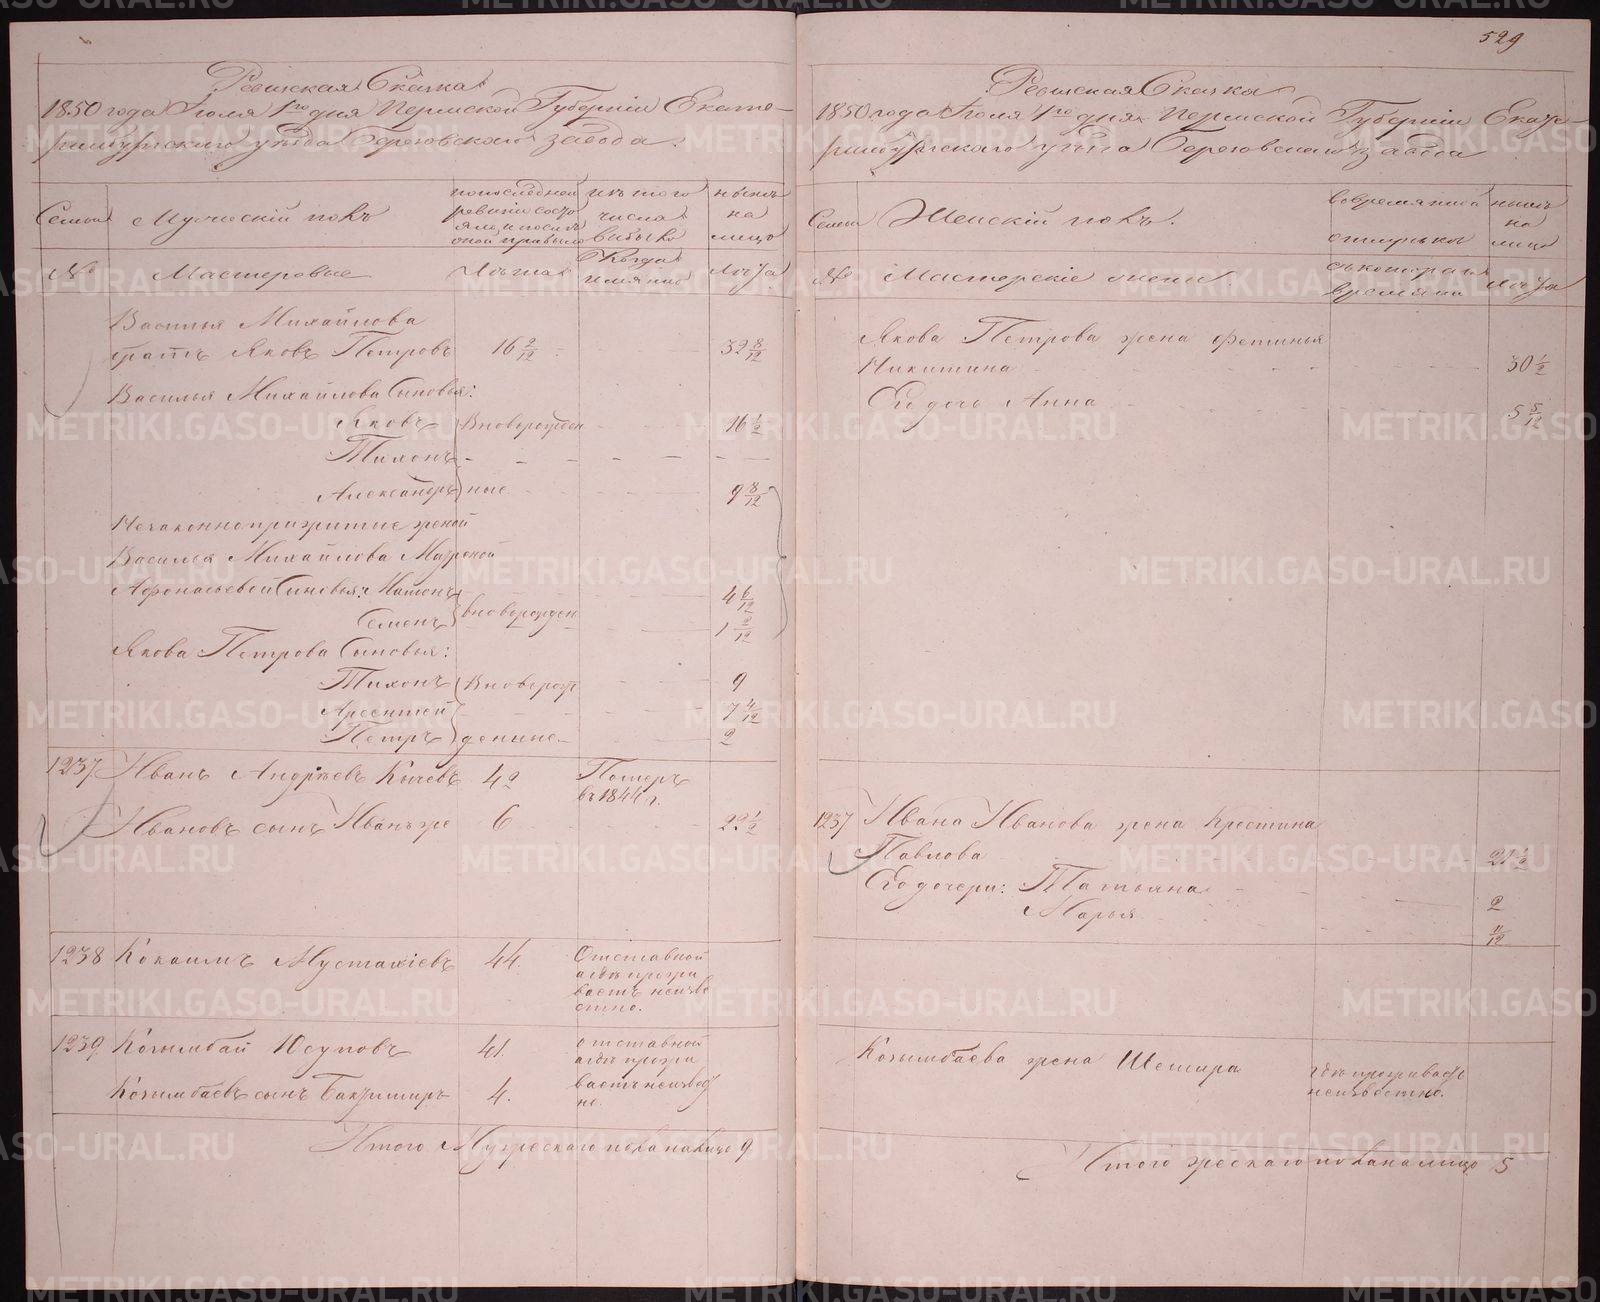 529
Ревизская Сказка
1850 года Іюля 1го дня Пермской Губерніи Екате-
ринбургского уѣзда Березовскаго завода.
Семьи
Мужескій полъ
по последней ревизіи состояло и после оной прибыло
изъ того числа выбыло
нынѣ на лицо
№
Мастеровые
Лѣта
Когда именно
Лѣта
Василья Михайлова
братъ Яковъ Петровъ 16 2/12 32 8/12
Василья Михайлова Сыновья:
Яковъ Новорожден 16 1/2
Тихонъ
Александръ ные 9 8/12
Незаконноприжитые женой
Василья Михайлова Матреной
Афонасьевой Сыновья:
Семенъ новорожден 4 6/12
1 2/12
Якова Петрова Сыновья:
Тихонъ Новорож 9
Арсентей 7 4/12
Петръ денные 2
1237 Иванъ Андреевъ Кычевъ 42 Померъ
въ 1844 г.
Ивановъ сынъ Иванъ же 6 22 1/2
1238 44. Отставной
а где прожи
ваетъ неизве
стно.
1239 Козымбай Юсуповъ 41. отставной
а где прожи
Козымбаевъ сынъ 4. ваетъ неизвест
но.
Итого Мужескаго пола налицо 9
Ревизская Сказка
1850 года Іюля 1го дня Пермской Губерніи Екате-
ринбургскаго уѣзда Березовскаго завода
Семьи
Женскій полъ.
во временной отлучке
нынѣ на лицо
№
Мастерскіе жены.
съ котораго времени
Лѣта
Якова Петрова жена Фетинья
Никитина 30 1/2
Его дочь Анна 5 5/12
1237 Ивана Иванова жена Крестина
Павлова 21 1/2
Его дочери: Татьяна 2
Марья 11/12
Козымбаева жена где проживаетъ
неизвестно.
Итого женскаго пола налицо 5
METRIKI.GASO-URAL.RU